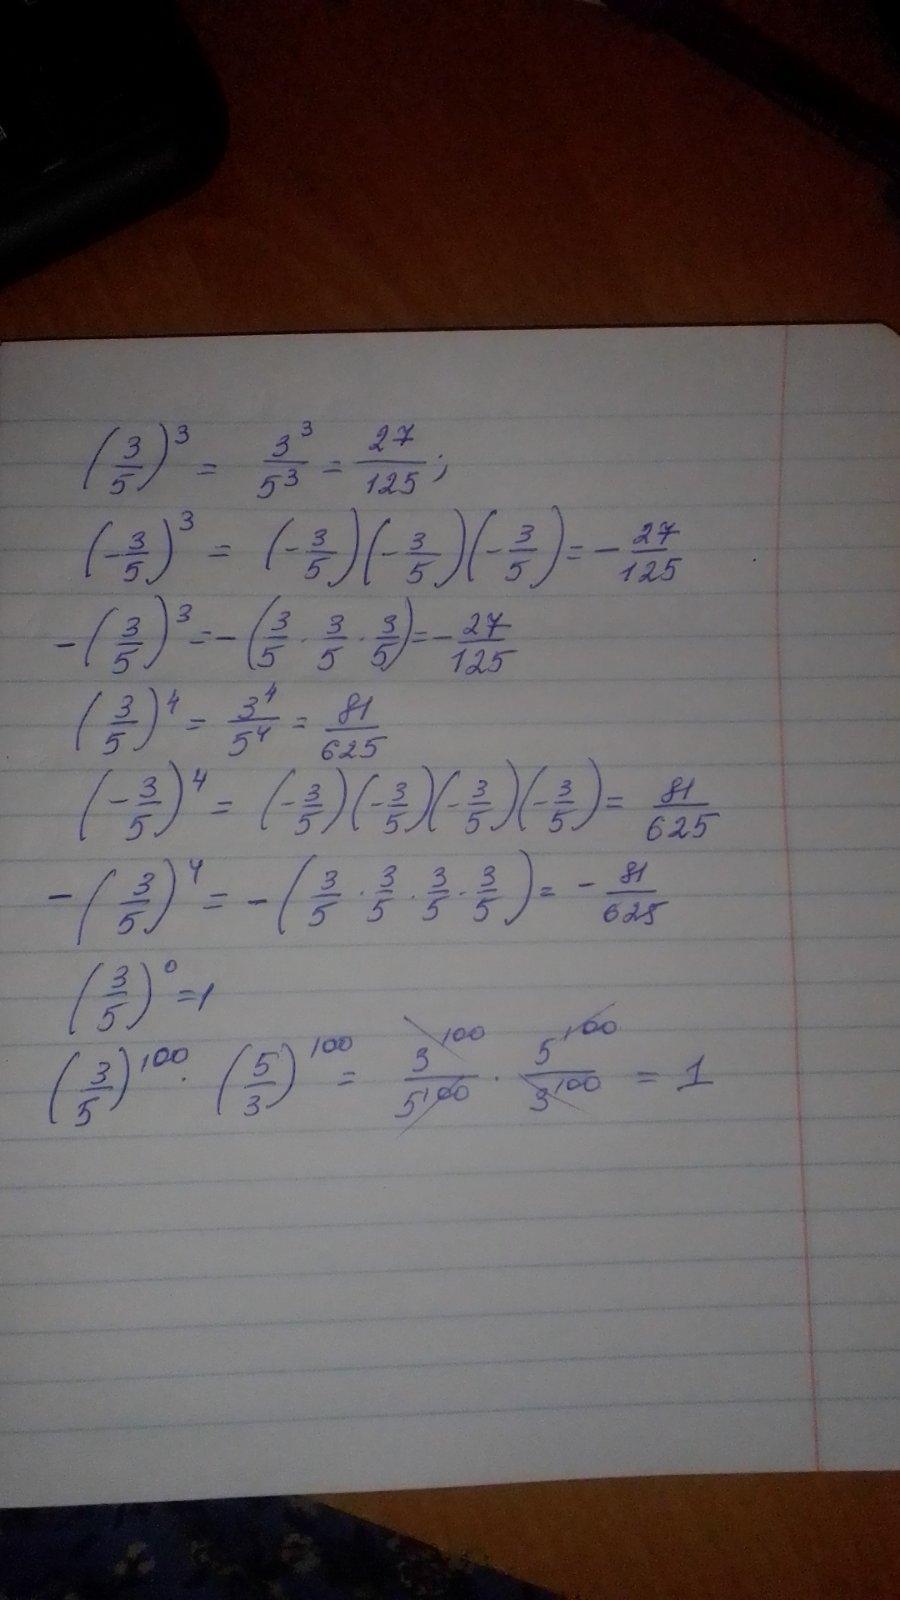 (3/5)^3 = 3^3/5^3 = 27/125;
(-3/5)^3 = (-3/5)(-3/5)(-3/5) = -27/125
-(3/5)^3 = -(3/5 · 3/5 · 3/5) = -27/125
(3/5)^4 = 3^4/5^4 = 81/625
(-3/5)^4 = (-3/5)(-3/5)(-3/5)(-3/5) = 81/625
-(3/5)^4 = -(3/5 · 3/5 · 3/5 · 3/5) = -81/625
(3/5)^0 = 1
(3/5)^100 · (5/3)^100 = 3^100/5^100 · 5^100/3^100 = 1